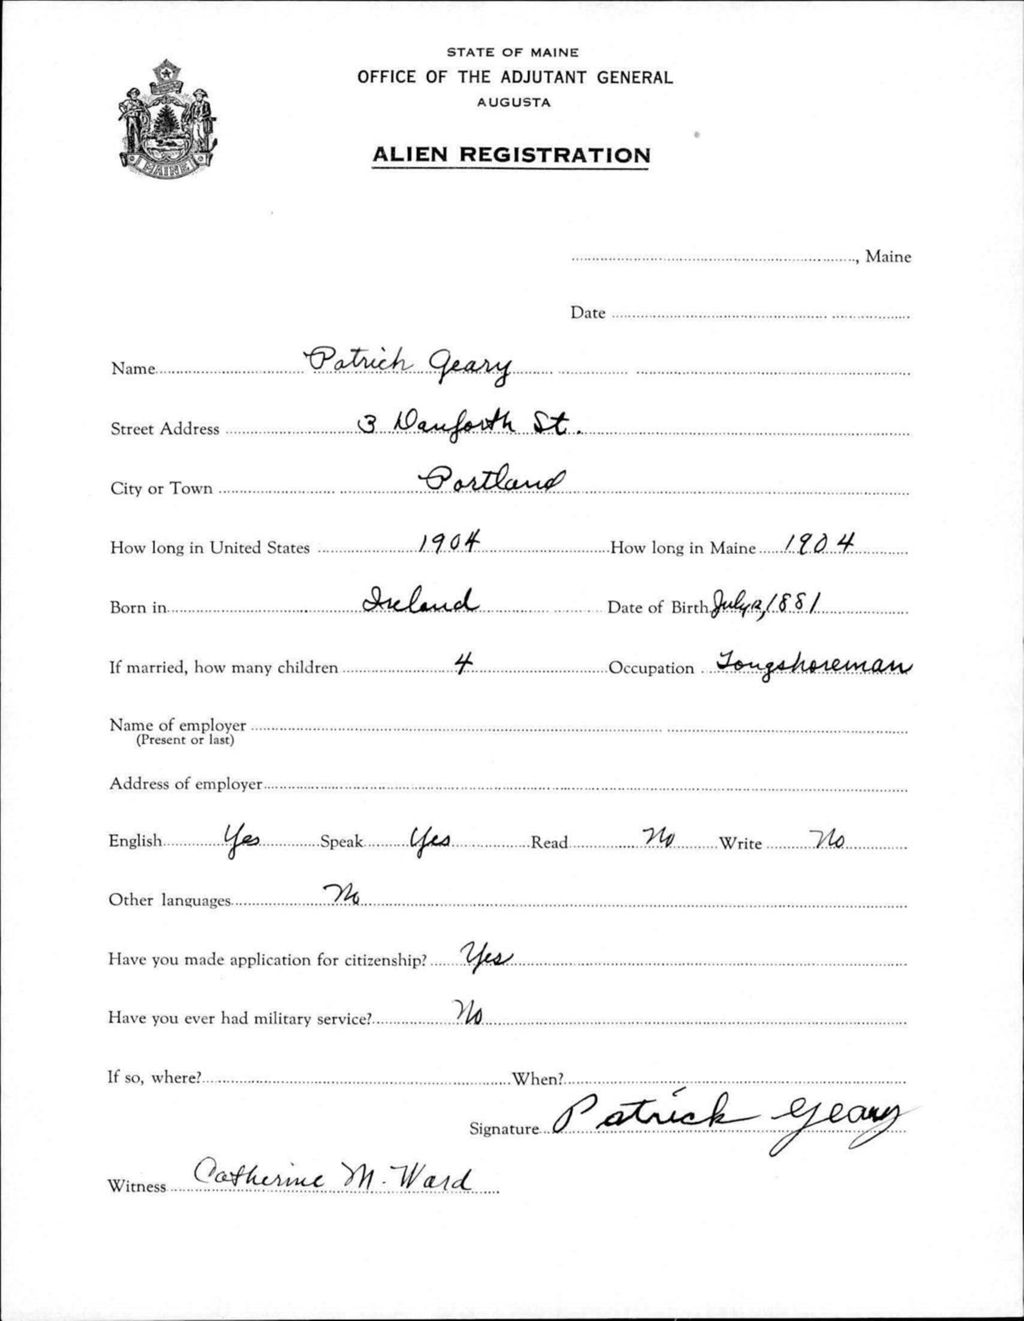 STATE OF MAINE
OFFICE OF THE ADJUTANT GENERAL
AUGUSTA
ALIEN REGISTRATION
MAINE
, Maine
Date
Name Patrick Geary
Street Address 3 Danforth St.
City or Town Portland
How long in United States 1904 How long in Maine 1904
Born in Ireland Date of Birth July 2, 1881
If married, how many children 4 Occupation Longshoreman
Name of employer
(Present or last)
Address of employer
English Yes Speak Yes Read No Write No
Other languages No
Have you made application for citizenship? Yes
Have you ever had military service? No
If so, where? When?
Signature Patrick Geary
Witness Catherine M. Ward